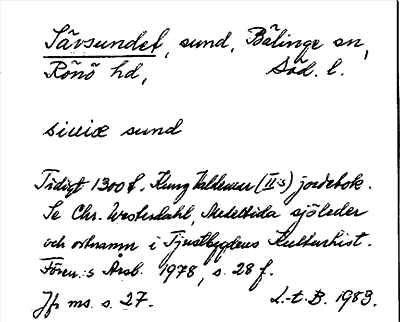 Sävsundet, sund, Bälinge sn,
Rönö hd, Söd. l.
siuiæ sund
Tidigt 1300t. Kung Valdemar (II:s) jordebok.
Se Chr. Westerdahl, Medeltida sjöleder
och ortnamn i Tjustbygdens Kulturhist.
Fören:s Årsb. 1978, s. 28 f.
Jfr ms. s. 27. L.-t. B. 1983.